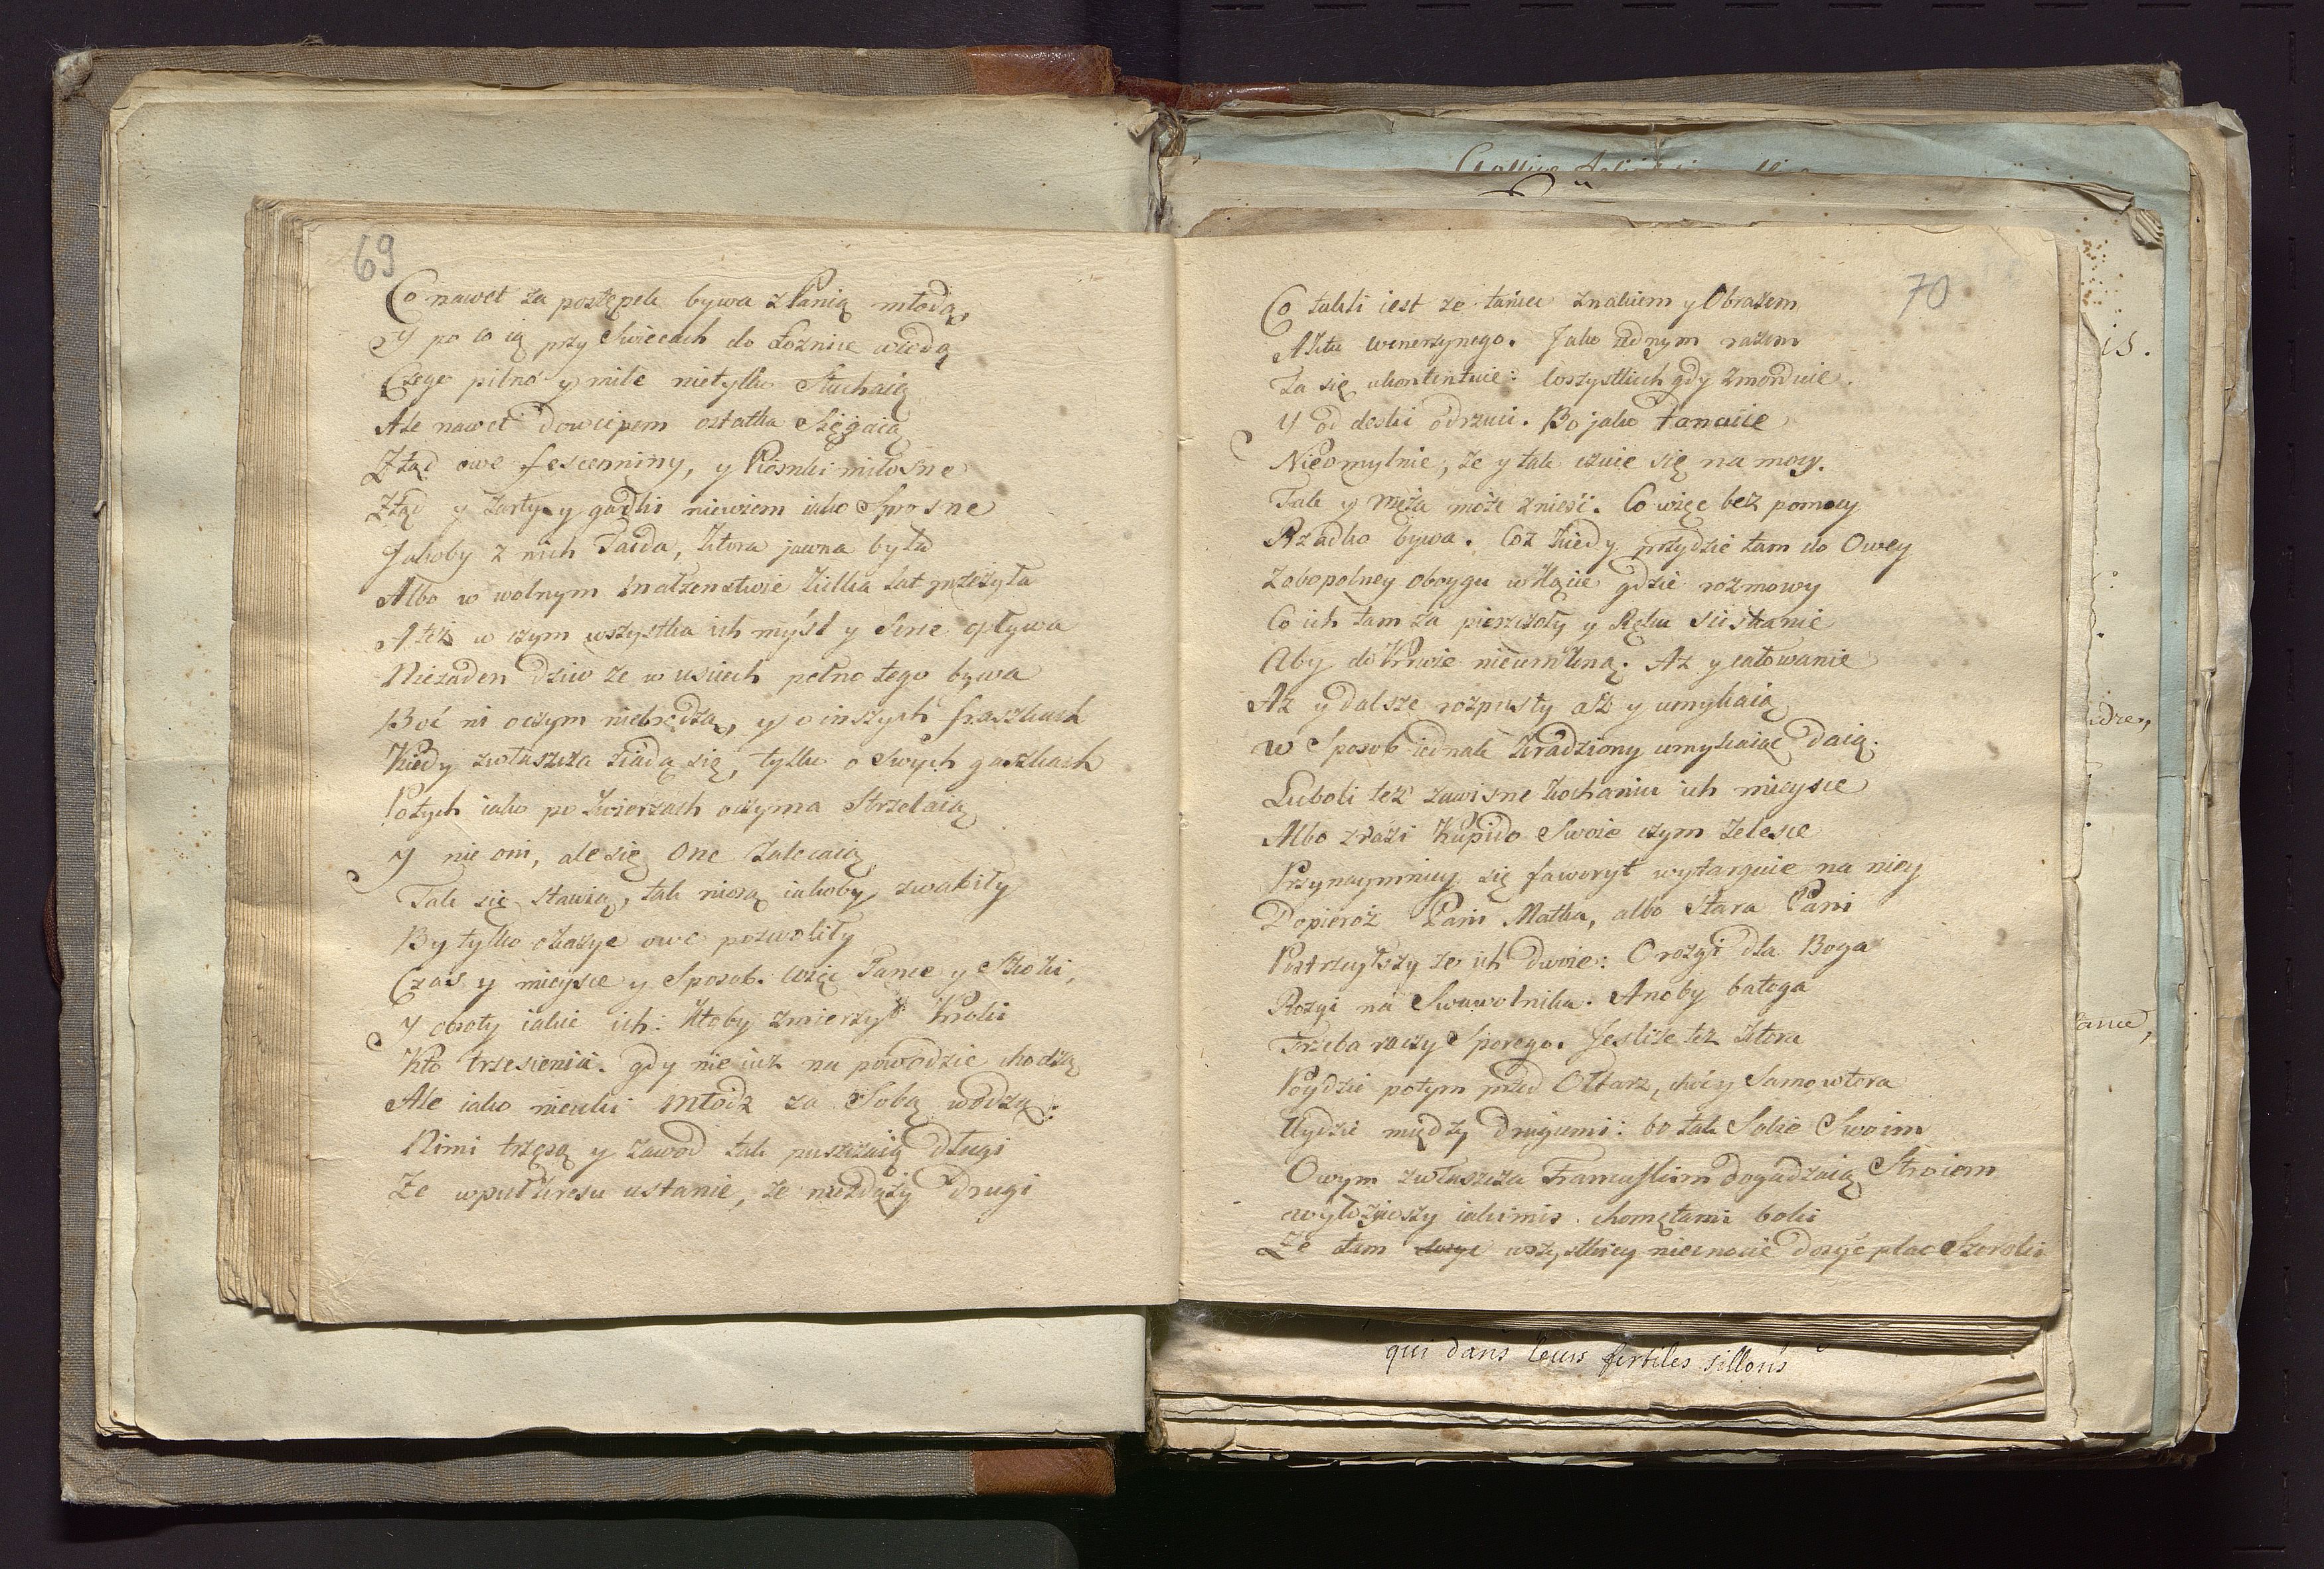 69
Co nawet za postępek bywa z Panią młodą,
Y po co ią przy Swiecach do Łoznice wiodą
Czego pilno y mile nietylko Słuchaią
Ale nawet dowcipem ostatka Sięgaią
Ztąd owe fescenniny, y Piosnki miłosne
Ztąd y zarty y gadki niewiem iako Sprosne
Jakoby z nich Taida, ktora jawna była
Albo w wolnym małzenstwie kilka lat przezyła
A też w czym wszystka ich myśl y Serce opływa
Niezaden dziw że w usciech pełno tego bywa
Boć ni oczym niebędzą, y o inszych fraszkach
Kiedy zwłaszcza ziadą się, tylko o Swych gaszkach
Potych iako po Zwierzach oczyma Strzelaią
Y nie oni, ale się One zalecaią
Tak się stawią, tak niosą iakoby zwabiły
By tylko okazye owe pozwoliły
Czas y mieysce y Sposob. Więc Tance y Skoki,
Y obroty iakie ich: Ktoby zmierzył Kroki
Kto trzesienia. gdy nie iuz na powodzie chodzą
Ale iako nieuki młodz za Sobą wodzą:
Nimi trzęsą y zawod tak puszczaią długi
Ze wpuł kresu ustanie, ze niezdąży drugi
70
Co takli iest ze taniec znakiem y Obrazem
Aktu wenerzynego. Jako iednym razem
Ta się ukontentuie: wszystkich gdy zmorduie.
Y od deski odrzuci. Bo jako tancuie
Nieomylnie, ze y tak czuie się na mocy.
Tak y męża może znieść. Co więc bez pomocy
Rzadko bywa. Coz kiedy przydzie tam do Owey
Zobopolney oboygu w kącie gdzie rozmowy
Co ich tam za pieszczoty y Ręku sciskanie
Aby do Krwie nieumkną. Az y całowanie
Az y dalsze rozpusty asz y umykaią
w Sposob iednak kradziony umykaiąc daią.
Luboli też zawisne kochaniu ich mieysce
Albo zrazi Kupido Swoie czym żelesce
Przynaymniey się faworyt wytarguie na niey
Dopieroż Pani Matka, albo Stara Pani
Postrzegłszy ze ich dwoie: O rozgi dla Boga
Rozgi na Swawolnika. Anoby batoga
Trzeba raczy Sporego. Jeslize też ktora
Poydzie potym przed Ołtarz, choć y Samowtora
Uydzie między drugiemi: bo tak Sobie Swoim
Owym zwłaszcza Francuskim dogadzaią Stroiem
wyłożywszy iakimis chomętami boki
Ze tam wszystkiey niecnocie dosyć plac Szeroki
qui dans leurs fertiles sillons
is.